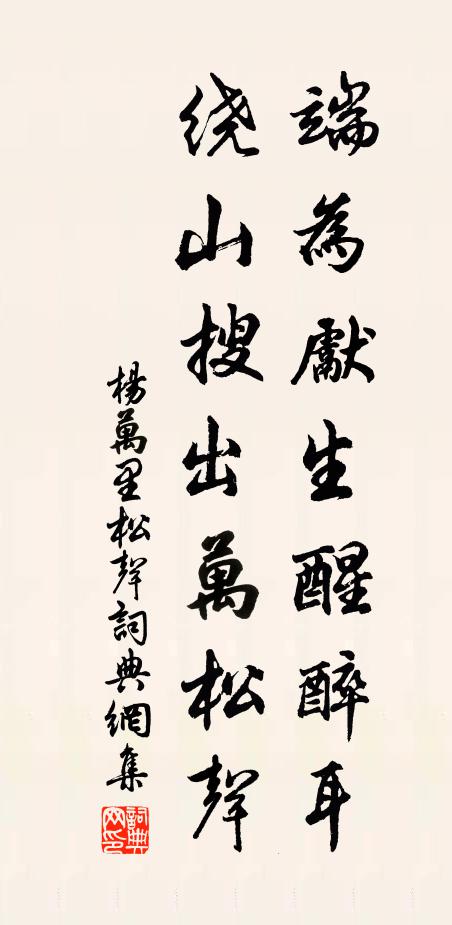 端為獻生醒醉耳
绕山搜出萬松聲
楊萬里松聲詞典網集
詞典網印